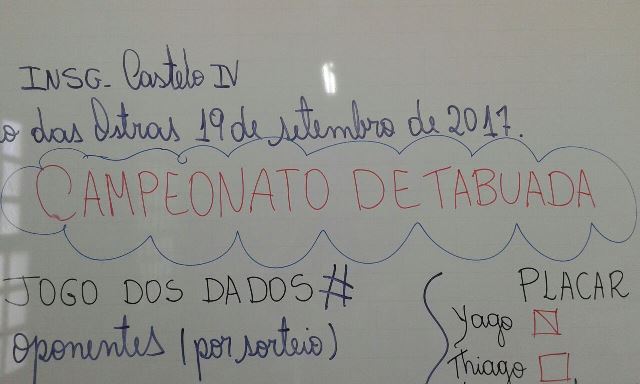 INSG- Castelo IV
o das Ostras 19 de setembro de 2017.
CAMPEONATO DE TABUADA
JOGO DOS DADOS #
oponentes (por sorteio)
PLACAR
Yago
Thiago